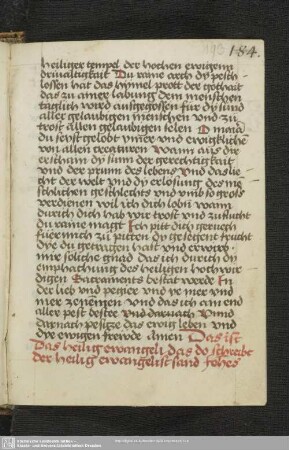 184.
heiliger tempel der hochen ewigenn
driualtigkait Du raine arch dÿ pesch
lossen hat das himel prott der gothait
das zu ainer labung dem menschen
täglich wird ausgegossen für dÿ sund
aller gelaubigen menschen vnd zu
trost allen gelaubigen selen O maria
du seÿst gelobt ymer vnd ewigkliche
von allen creaturen Wann aus dir
erscham dÿ sunn der gerechtigkait
vnd der prunn des lebens vnd das lie
cht der welt vnd dÿ erlosung des me
schlichen geschlechts vnd vmb so gross
verdienen wil ich dich lobn wann
durich dich hab wir trost vnd zuflucht
du raine magt Ich pitt dich geruech
fuer mich zu pitten dÿ gesegent frucht
dye du getragen hast vnd erwirb
mir soliche gnad das ich durich dÿ
emphachung des heiligen hochwir
digen Sacraments bestat werde In
der lieb vnd pegier vnd ye mer vnd
mer zenemen vnd das ich am end
aller pest bester vnd darnach
darnach pesicze das ewig leben vnd
dye ewigen freiwde amen Das ist
das heilig ewangeli das do schreibt
der heilig ewangelist sand Johes